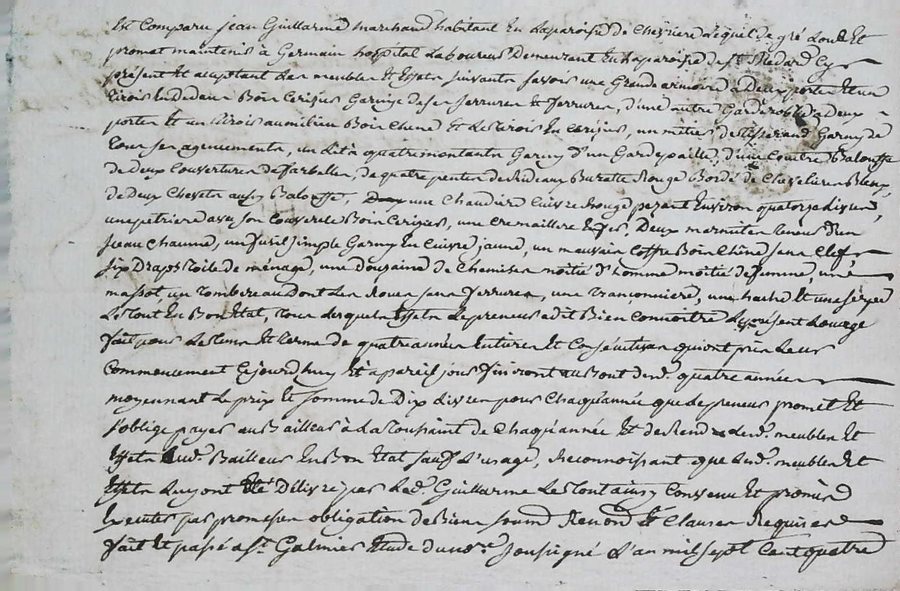 Est Comparu jean Guillarme marchand habitant En la paroisse de Chevriere lequel de gré Loue Et
promet maintenir à Germain hospital Laboureur Demeurant En la paroisse de st Medard Cy
présent Et acceptant Les meubles Et Effets suivants savoir une Grande armoire a Deux portes Et un
tiroir En dedans Bois Cerisier Garnie de ses serrures Et ferrures, d'une autre Garderobbe a Deux
portes Et un tiroir au milieu Bois Chene Et Le tiroir En Cerisier, un métier de tisserand Garny de
tous ses agencements, un Lit à quatre montants Garny d'un Gardepaille, d'une Couëtre Balouffe
de deux Couvertures de Sarballes, de quatre pentes de Rideaux Buratte Rouge Bordé de Chevelieres Bleux,
de deux Chevets aussy Balouffe, une Chaudiere Cuivre Rouge pezant Environ quatorze Livres,
une petriere avec son Couvercle Bois Cerisier, une Cremaillere En fer, Deux marmites tenant d'un
seau Chaume, un fusil simple Garny En Cuivre jaune, un mauvais Coffre Bois Chêne sans Clef,
six Draps toile de ménage, une douzaine de Chemises moitié d'homme moitié de femme, une
massot, un tombereau Dont Les Roues sans ferrures, une tranconniere, une hache Et une serpe
Le tout En Bon Etat, tous Lesquels Effets Le preneur a dit Bien Connoitre Le présent Louage
fait pour Le tems Et terme de quatre années Entieres Et Consécutives qui ont pris Leur
Commencement Cejourdhuy Et a pareil jour finiront au Bout desd. quatre années
moyennant Le prix Et somme de Dix Livres pour Chaque année que Le preneur promet Et
s'oblige payer au Bailleur à La toussaint de Chaque année Et de Rendre Lesd. meubles Et
Effets aud. Bailleur En Bon Etat sauf L'usage, Reconnoissant que Lesd. meubles Et
Effets Luy ont Eté Délivré par Led. Guillarme Le tout ainsy Convenu Et promis
Executer par promesses obligation de Biens soumis Renond Et Clauses Requises
fait Et passé a st. Galmier Etude du nore. soussigné L'an mil sept Cent quatre